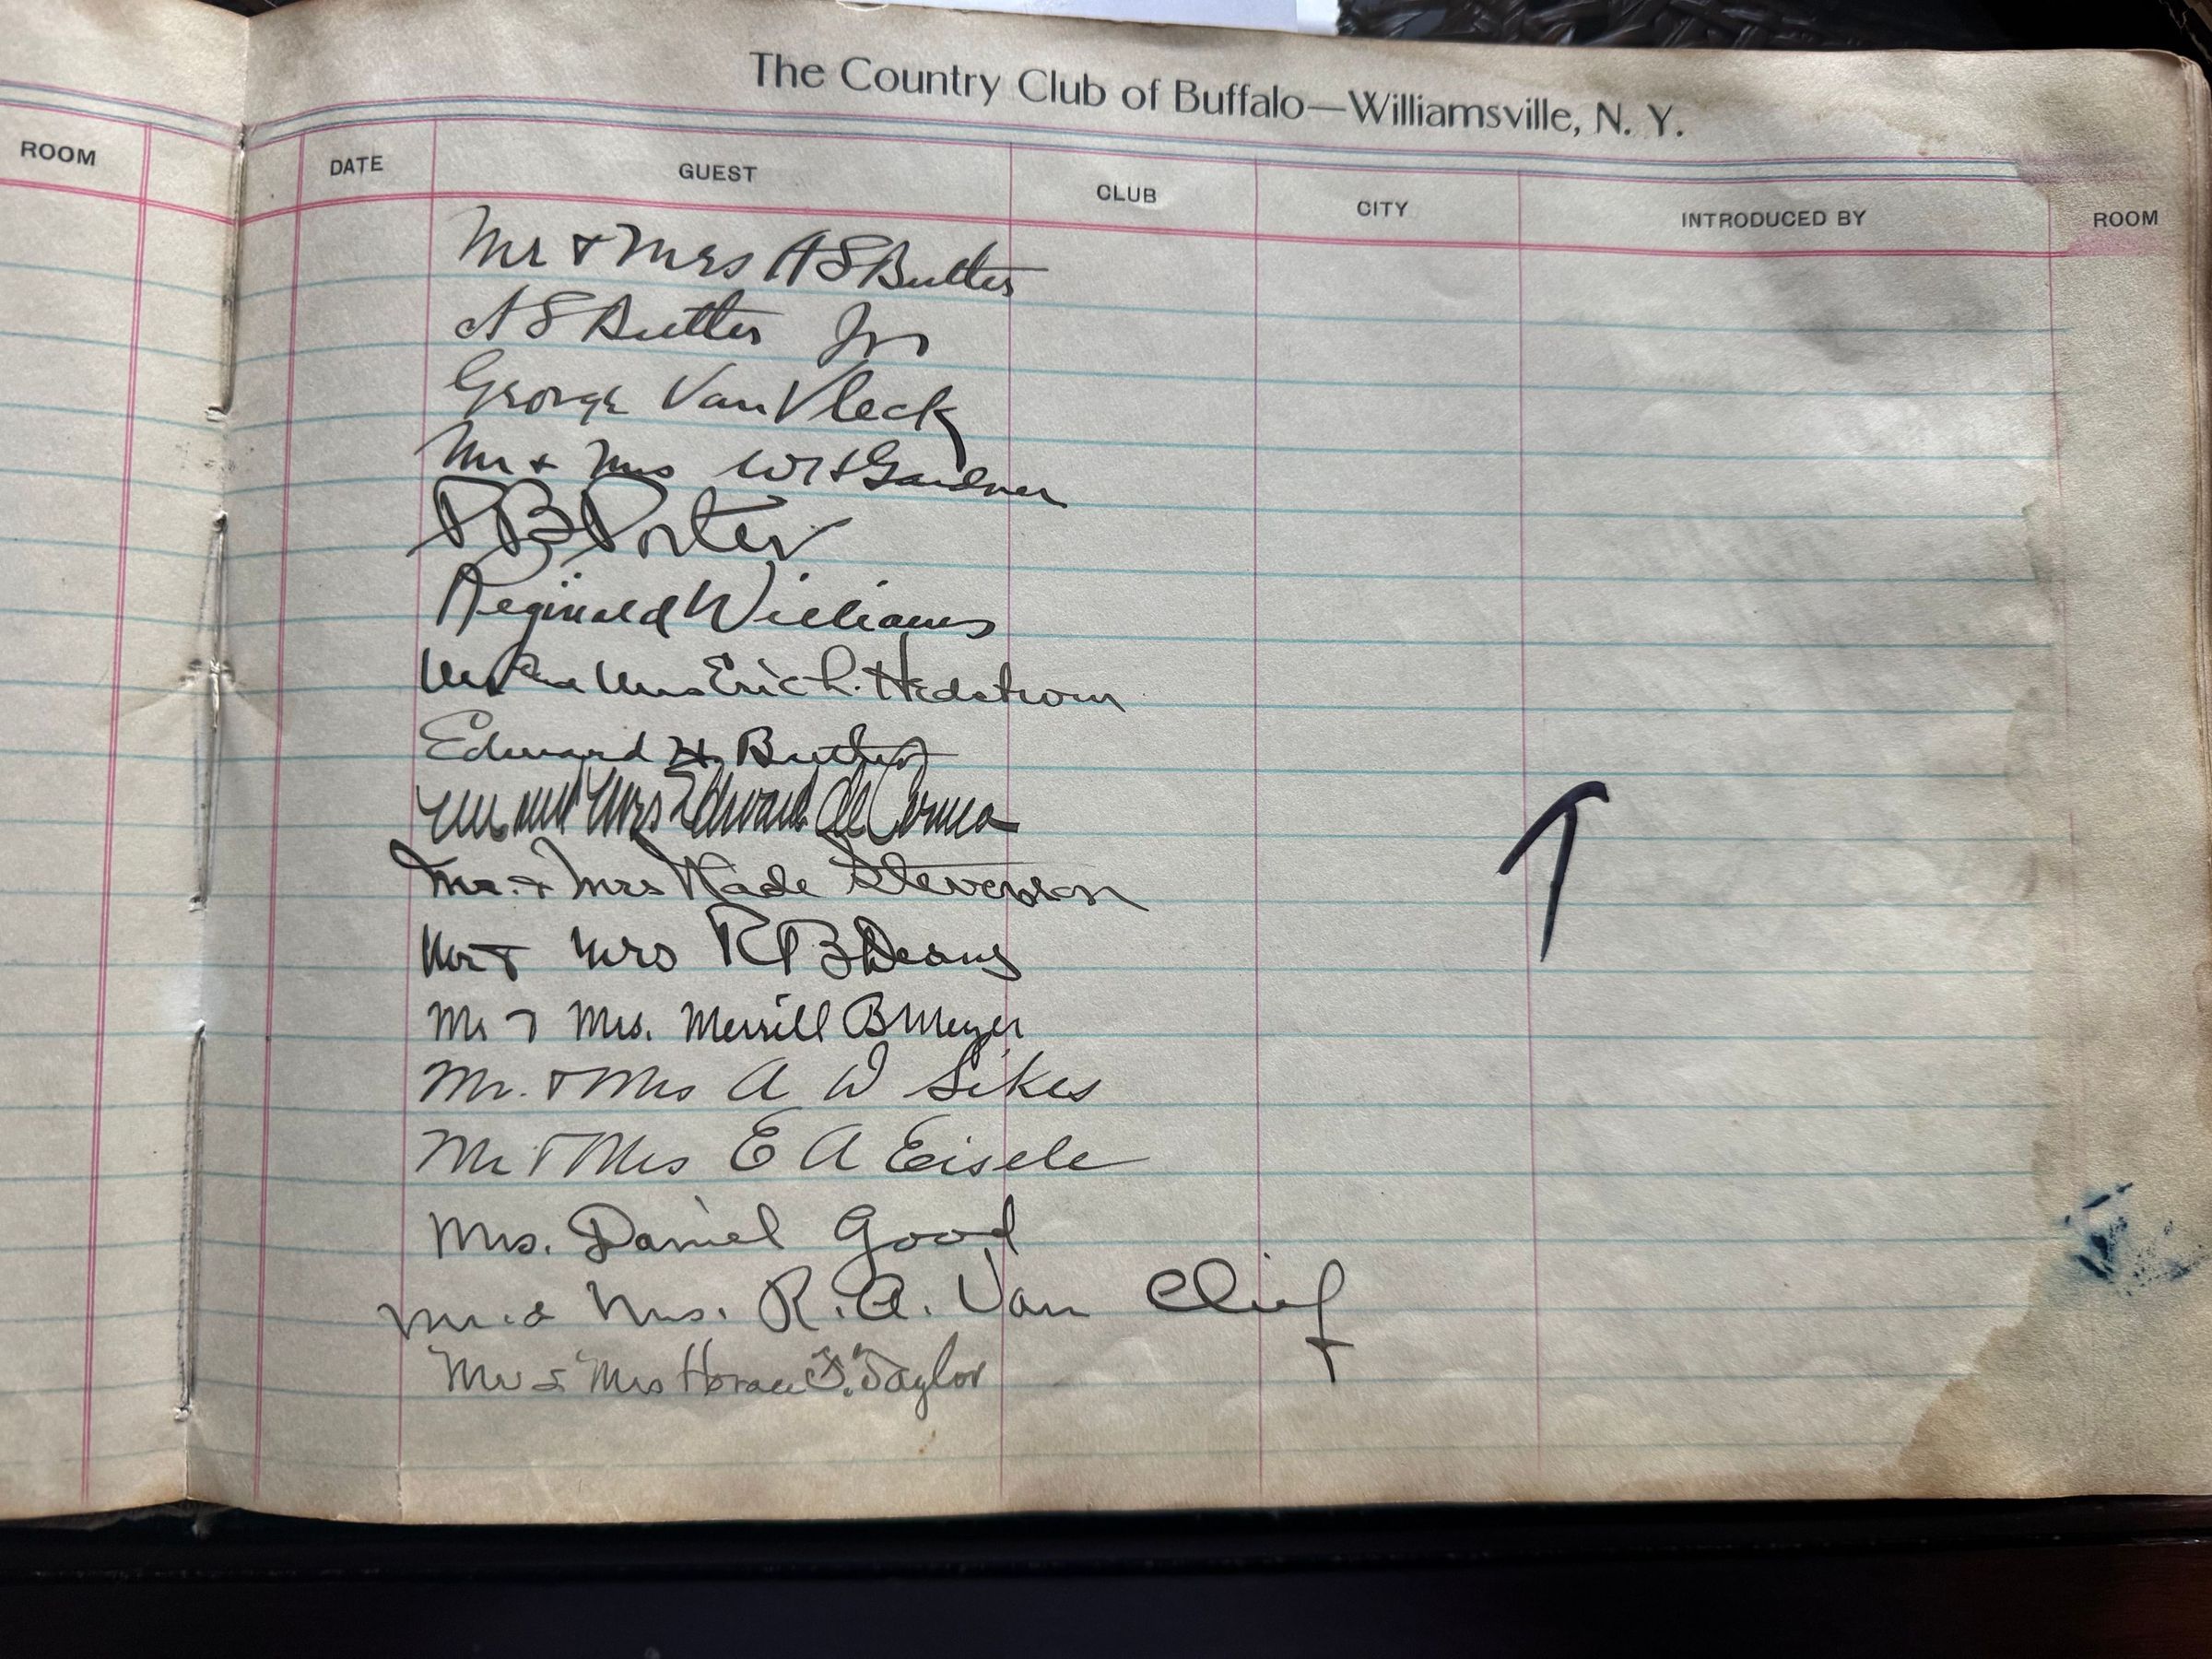 The Country Club of Buffalo—Williamsville, N. Y.
ROOM DATE GUEST CLUB CITY INTRODUCED BY ROOM
Mr & Mrs A S Butler
A S Butler Jr
George Van Vleck
Mr & Mrs Gardner
P B Porter
Reginald Williams
Mr and Mrs Eric L. Hedstrom
Edward H. Butler
Mr and Mrs Edward de
Mr. & Mrs Wade Stevenson
Mr & Mrs R B Deans
Mr & Mrs. Merrill B Meyer
Mr. & Mrs A W Sikes
Mr & Mrs E A Eisele
Mrs. Daniel Good
Mr. & Mrs. R. A. Van Clief
Mr & Mrs Horace F. Taylor